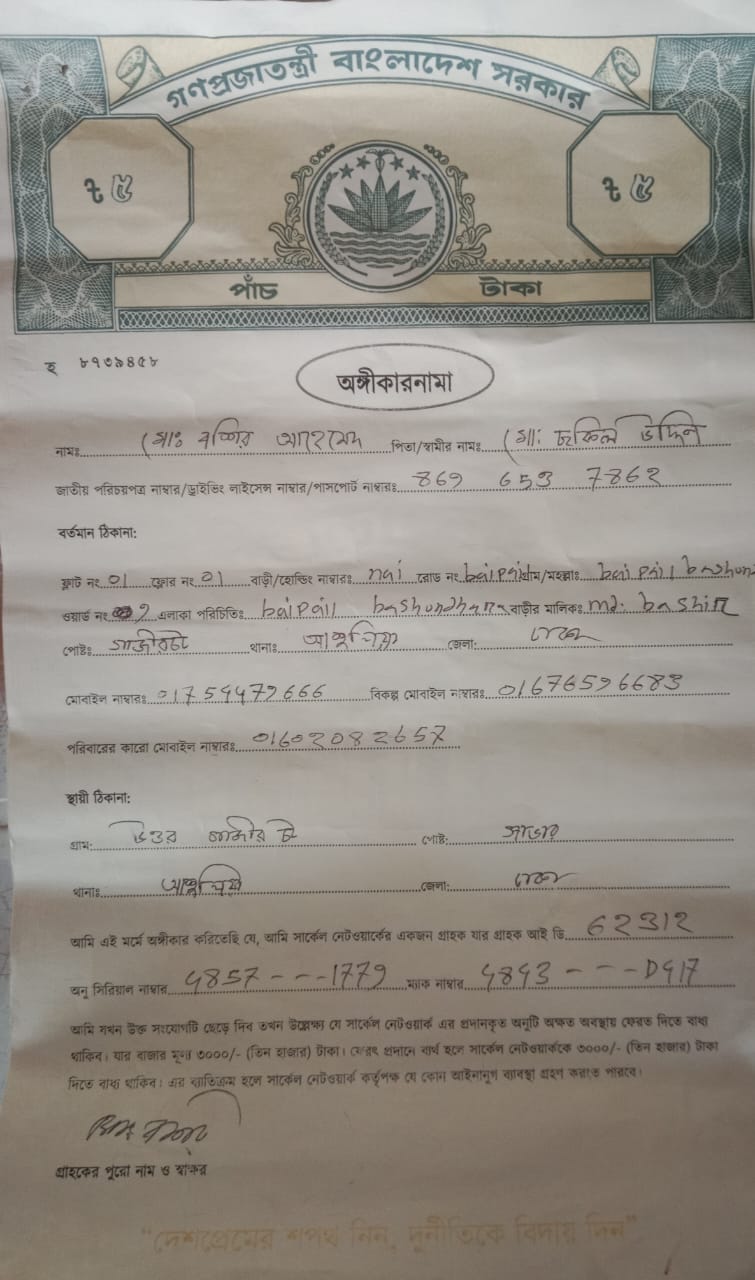 গণপ্রজাতন্ত্রী বাংলাদেশ সরকার
৳ ৫ ৳ ৫
পাঁচ টাকা
হ ৮৭৩৯৪৫৮
অঙ্গীকারনামা
নামঃ মোঃ বশির আহমেদ পিতা/স্বামীর নামঃ মোঃ উদ্দিন
জাতীয় পরিচয়পত্র নাম্বার/ড্রাইভিং লাইসেন্স নাম্বার/পাসপোর্ট নাম্বারঃ 869 653 7862
বর্তমান ঠিকানা:
ফ্লাট নং 01 ফ্লোর নং 01 বাড়ী/হোল্ডিং নাম্বারঃ nai রোড নং baipail গ্রাম/মহল্লাঃ baipail bashun
ওয়ার্ড নং 9 এলাকা পরিচিতিঃ baipail bashundhara বাড়ীর মালিকঃ md. bashir
পোষ্টঃ থানাঃ আশুলিয়া জেলা: ঢাকা
মোবাইল নাম্বারঃ 01759479666 বিকল্প মোবাইল নাম্বারঃ 01676596683
পরিবারের কারো মোবাইল নাম্বারঃ 01602082657
স্থায়ী ঠিকানা:
গ্রাম: উত্তর পোষ্ট: সাভার
থানাঃ আশুলিয়া জেলা: ঢাকা
আমি এই মর্মে অঙ্গীকার করিতেছি যে, আমি সার্কেল নেটওয়ার্কের একজন গ্রাহক যার গ্রাহক আই ডি 62312
অনু সিরিয়াল নাম্বার 4857---1779 ম্যাক নাম্বার 4843---D417
আমি যখন উক্ত সংযোগটি ছেড়ে দিব তখন উল্লেখ্য যে সার্কেল নেটওয়ার্ক এর প্রদানকৃত অনুটি অক্ষত অবস্থায় ফেরত দিতে বাধ্য
থাকিব। যার বাজার মূল্য ৩০০০/- (তিন হাজার) টাকা। ফেরৎ প্রদানে ব্যর্থ হলে সার্কেল নেটওয়ার্ককে ৩০০০/- (তিন হাজার) টাকা
দিতে বাধ্য থাকিব। এর ব্যতিক্রম হলে সার্কেল নেটওয়ার্ক কর্তৃপক্ষ যে কোন আইনানুগ ব্যবস্থা গ্রহণ করতে পারবে।
গ্রাহকের পুরো নাম ও স্বাক্ষর
"দেশপ্রেমের শপথ নিন, দুর্নীতিকে বিদায় দিন"